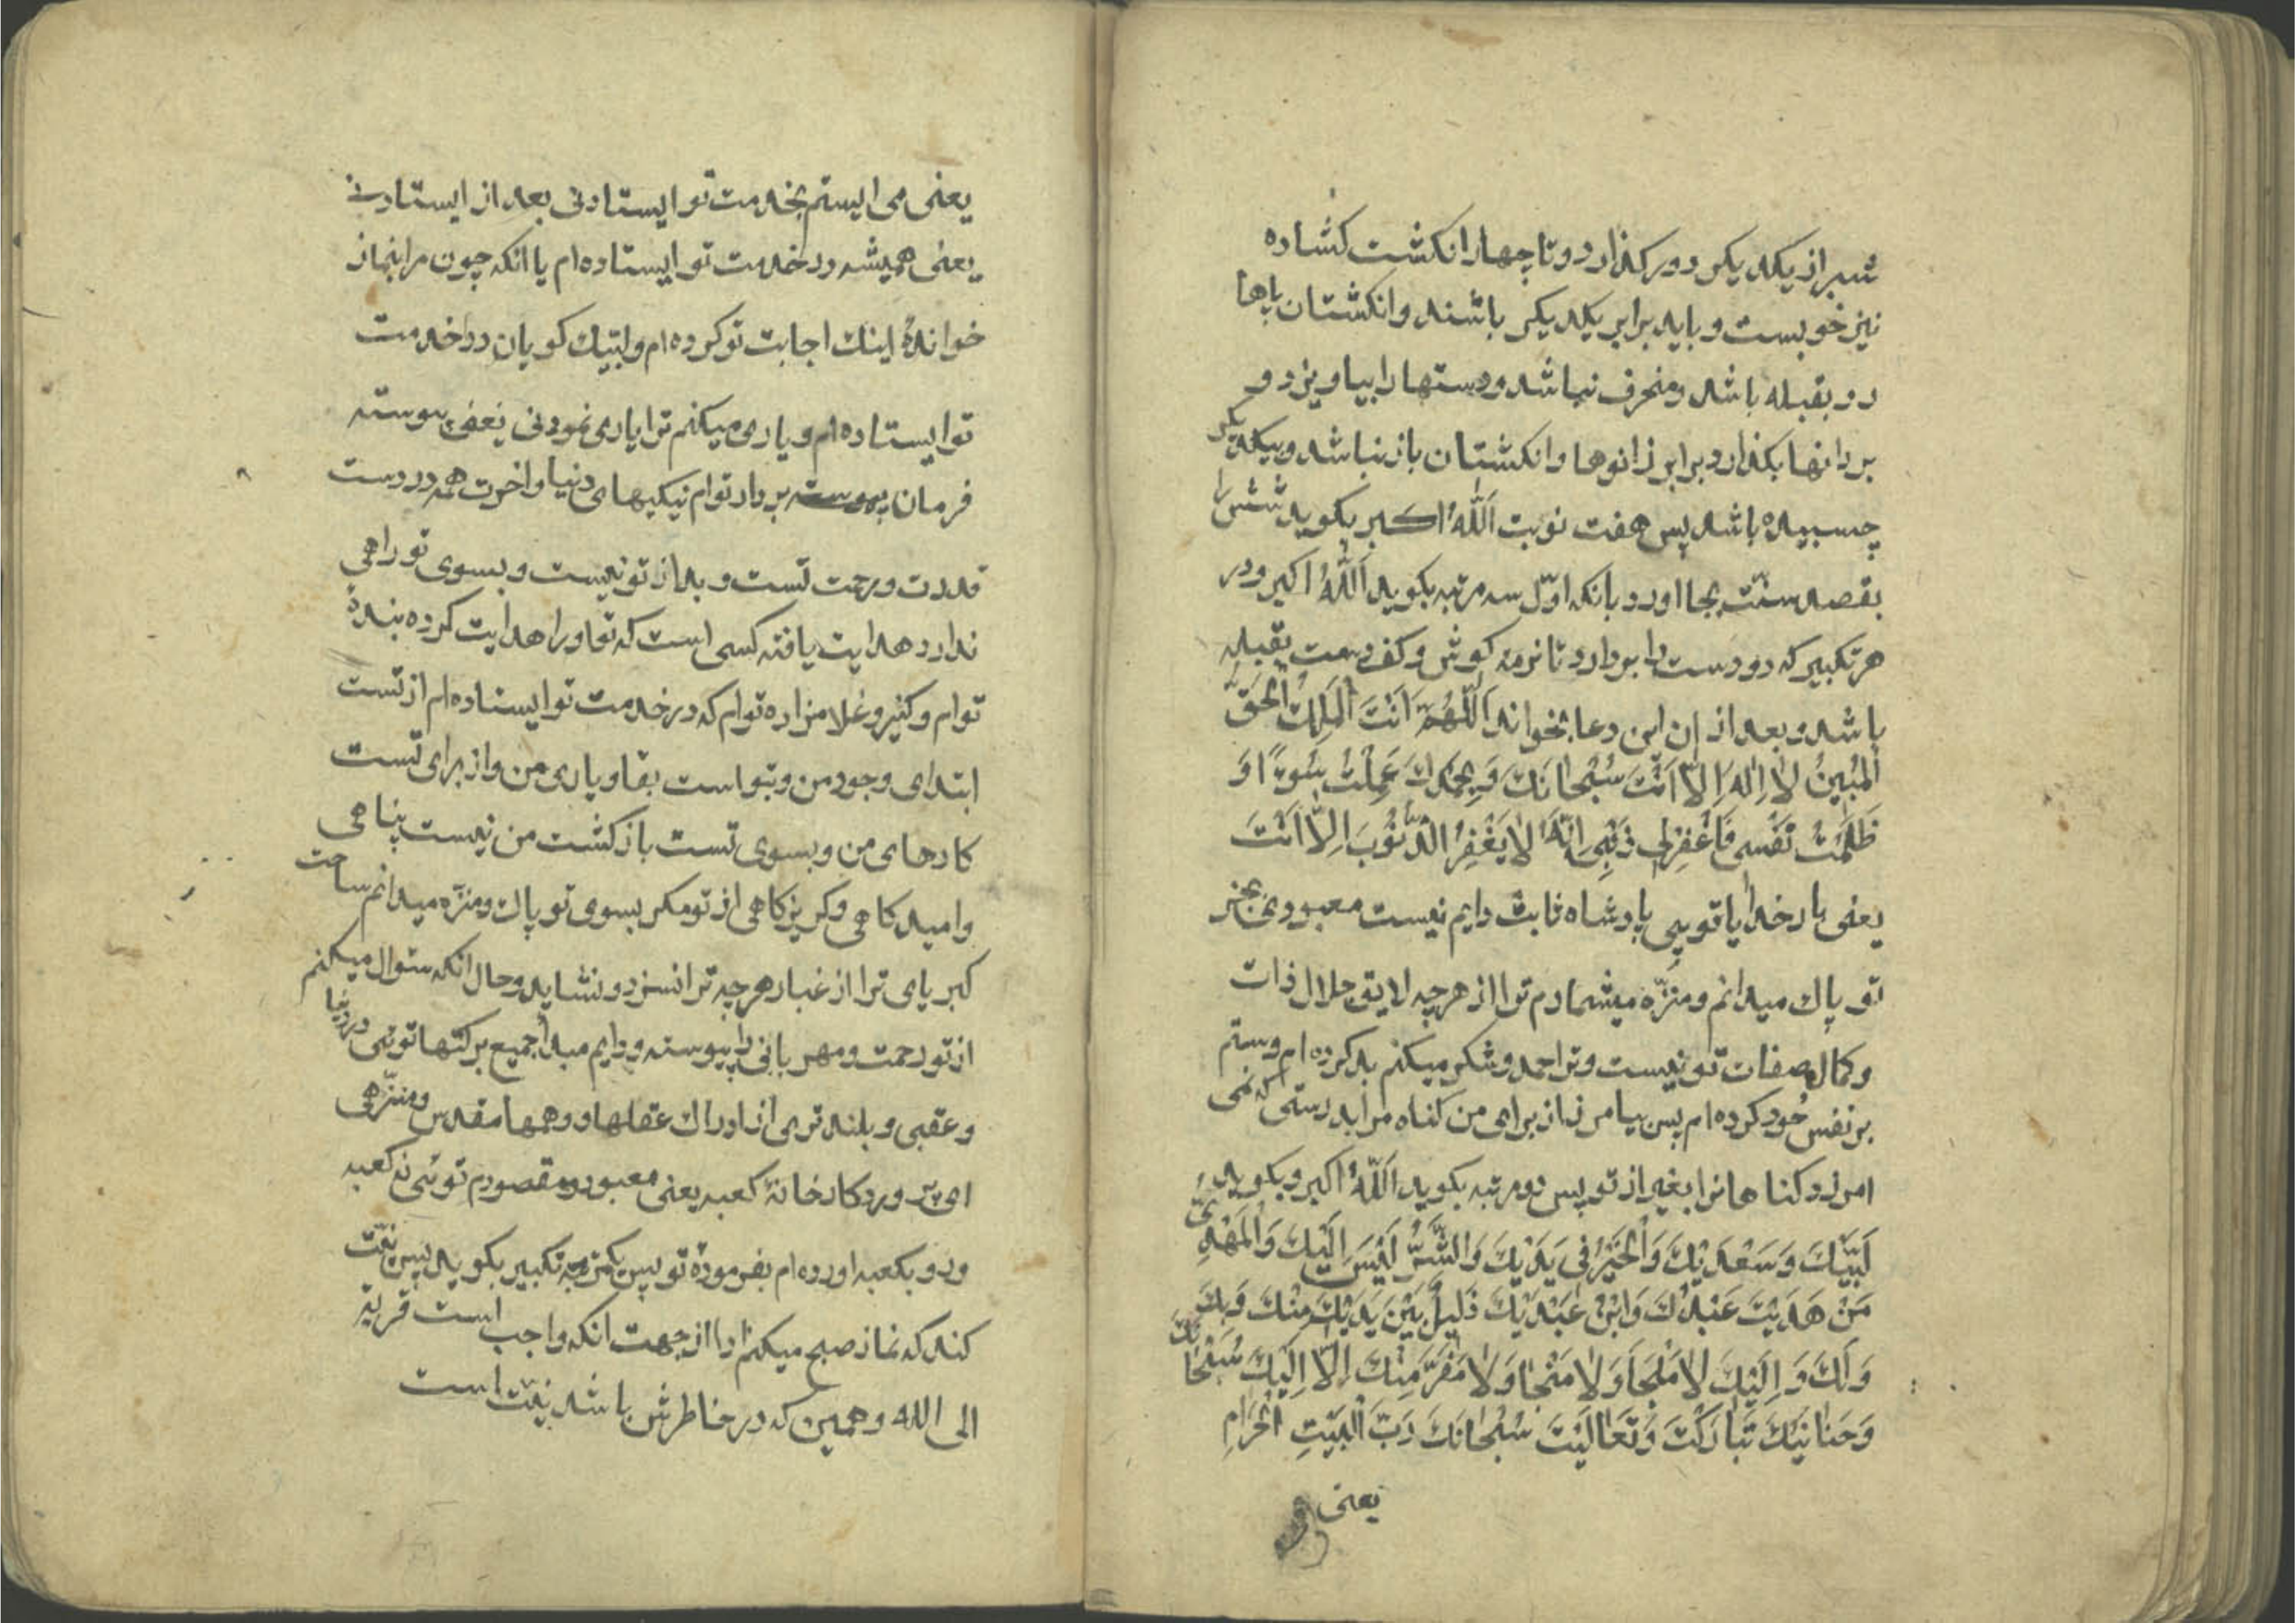 شبر از یکدیکر دور کذارد و تا چهار انکشت کشاده
نیز خوبست و باید برابر یکدیکر باشند و انکشتان پاها
رو بقبله باشد و منحرف نباشد و دستها را بیاویزد و
بر رانها بکذارد برابر زانوها و انکشتان باز نباشد و بیکدیکر
چسبیده باشد پس هفت نوبت اَللّٰهُ اکبر بکوید شش را
بقصد سنّت بجا اورد بانکه اوّل سه مرتبه بکوید اَللّٰهُ اکبر و در
هر تکبیر که دو دست را بردارد تا نرمه کوش و کف دست بقبله
باشد و بعد از ان این دعا بخواند اَللّٰهُمَّ اَنْتَ اَلْمَلِكُ الْحَقُّ
اَلْمُبِینُ لاٰ اِلٰهَ اِلاّٰ اَنْتَ سُبْحٰانَكَ وَ بِحَمْدِكَ عَمِلْتُ سُوءًا وَ
ظَلَمْتُ نَفْسی فَاغْفِرْلی ذَنْبِی اِنَّهُ لاٰ یَغْفِرُ الذُّنُوبَ اِلاّٰ اَنْتَ
یعنی بار خدایا تویی پادشاه ثابت دایم نیست معبودی بجز
تو پاك میدانم و منزّه میشمارم ترا از هر چه لایق جلال ذات
و کمال صفات تو نیست و ترا حمد و شکر میکنم بد کرده ام و ستم
بر نفس خُود کرده ام پس بیامرز از برای من کناه مرا بدرستی که نمی
امرزد کناهانرا بغیر از تو پس دو مرتبه بکوید اَللّٰهُ اکبر و بکوید
لَبَّیْكَ وَ سَعْدَیْكَ وَالْخَیْرُ فی یَدَیْكَ وَالشَّرُّ لَیْسَ اِلَیْكَ وَالْمَهْدِیُّ
مَنْ هَدَیْتَ عَبْدُكَ وَابْنُ عَبْدَیْكَ ذَلِیلٌ بَیْنَ یَدَیْكَ مِنْكَ وَ بِكَ
وَ لَكَ وَ اِلَیْكَ لاٰ مَلْجَأَ وَلاٰ مَنْجٰا وَلاٰ مَفَرَّ مِنْكَ اِلاّٰ اِلَیْكَ سُبْحٰانَكَ
وَحَنٰانَیْكَ تَبٰارَكْتَ وَ تَعٰالَیْتَ سُبْحٰانَكَ رَبَّ الْبَیْتِ الْحَرٰامِ
یعنی
یعنی می ایستم بخدمت تو ایستادنی بعد از ایستادنی
یعنی همیشه در خدمت تو ایستاده ام یا انکه چون مرا بنماز
خواندهٔ اینك اجابت تو کرده ام و لبّیك کویان در خدمت
تو ایستاده ام و یاری میکنم ترا یاری نمودنی یعنی پیوسته
فرمان بردار توام نیکیهای دنیا و اخرت همه در دست
قدرت و رحمت تست و بد از تو نیست و بسوی تو راهی
ندارد هدایت یافته کسی است که تو او را هدایت کرده بندهٔ
توام و کنیز و غلامزاده توام که در خدمت تو ایستاده ام از تست
ابتدای وجود من و بتو است بقا و یاری من و از برای تست
کارهای من و بسوی تست بازکشت من نیست پناهی
و امیدکاهی و کریزکاهی از تو مکر بسوی تو پاك و منزّه میدانم ساحت
کبریای ترا از غبار هر چه ترا نسزد و نشاید و حال انکه سئوال میکنم
از تو رحمت و مهربانی را پیوسته و دایم مبدأ جمیع برکتها توئی در دنیا
و عقبی و بلندتری از ادراك عقلها و وهمها مقدس و منزّهی
ای پروردکار خانهٔ کعبه یعنی معبود و مقصودم توئی نه کعبه
و رو بکعبه اورده ام بفرمودهٔ تو پس یکمرتبه تکبیر بکوید پس نیّت
کند که نماز صبح میکنم ادا از جهت انکه واجب است قربة
الی الله و همین که در خاطرش باشد نیّت است